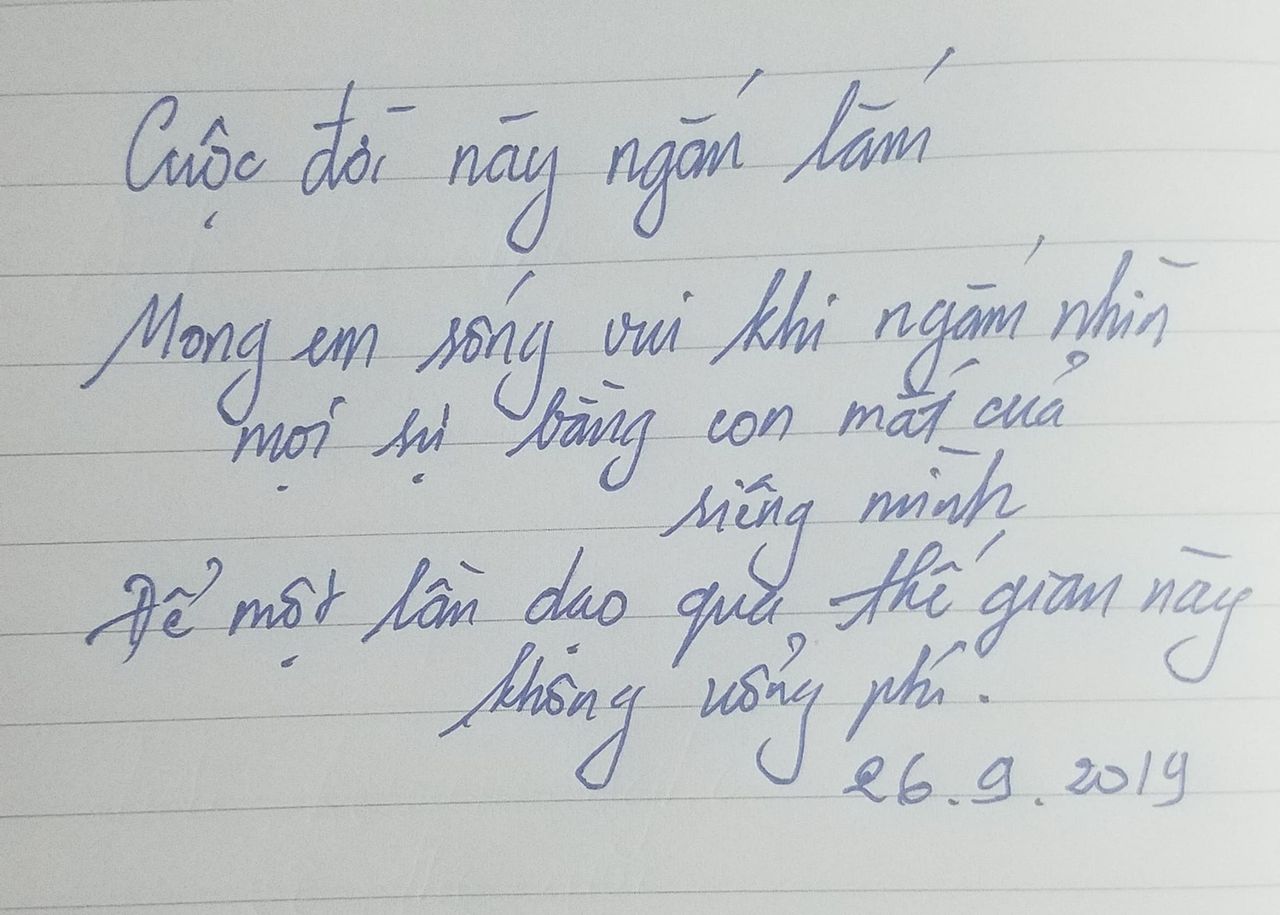 Cuộc đời này ngắn lắm
Mong em sống vui khi ngắm nhìn
mọi sự bằng con mắt của
riêng mình
Để một lần dạo qua thế gian này
không uổng phí.
26.9.2019